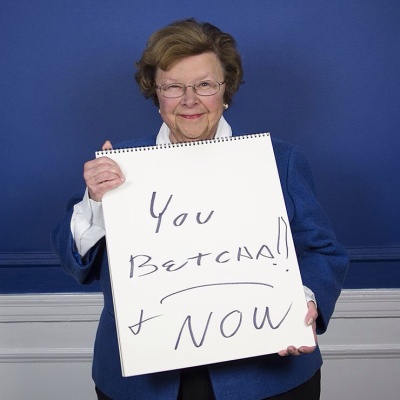 You
BETCHA!!
+ NOW